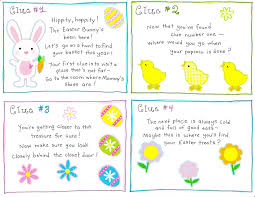 Clue #1
Hippity, hoppity!
The Easter Bunny's
been here!
Let's go on a hunt to find
your basket this year!
Your first clue is to visit a
place that's not far-
Go to the room where Mommy's
Shoes are!
Clue #2
Now that you've found
clue number one -
where would you go when
your popcorn is done?
Clue #3
You're getting closer to the
treasure for sure!
Now make sure you look
closely behind the closet door!
Clue #4
The next place is always cold
and full of good eats-
Maybe this is where you'll find
your Easter treats?